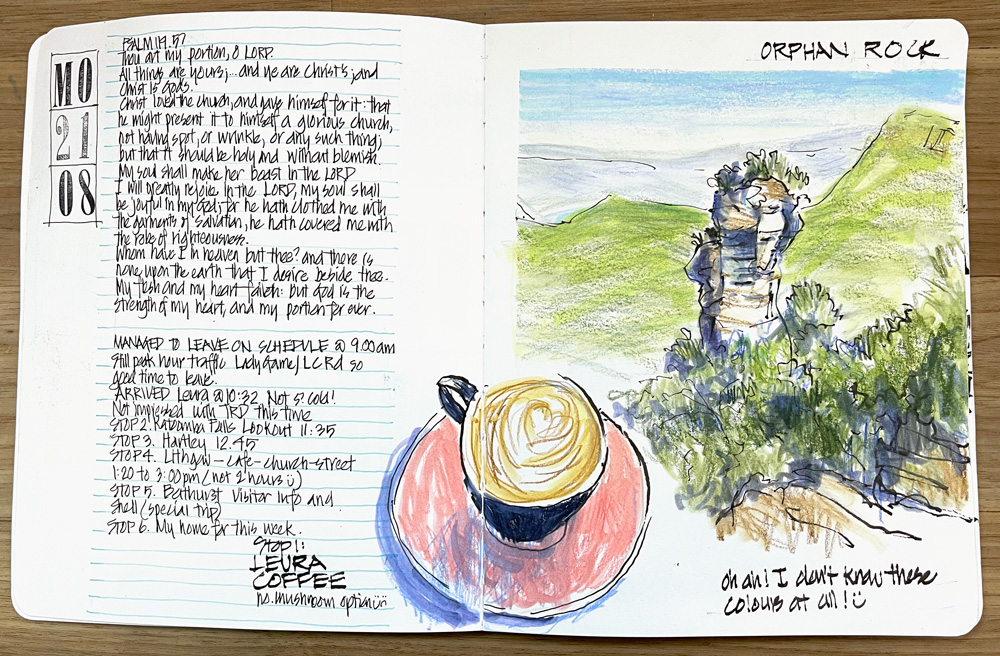 MO
21
08
PSALM 119.57
Thou art my portion, O LORD.
All things are yours;... and ye are Christ's; and
Christ is God's.
Christ loved the church, and gave himself for it: that
he might present it to himself a glorious church,
not having spot, or wrinkle, or any such thing;
but that it should be holy and without blemish.
My soul shall make her boast in the LORD
I will greatly rejoice in the LORD, my soul shall
be joyful in my God; for he hath clothed me with
the garments of salvation, he hath covered me with
the robe of righteousness.
Whom have I in heaven but thee? and there is
none upon the earth that I desire beside thee.
My flesh and my heart faileth: but God is the
strength of my heart, and my portion for ever.
MANAGED TO LEAVE ON SCHEDULE @ 9.00am
Still peak hour traffic Lady Game/LCRd so
good time to leave.
ARRIVED Leura @ 10:32 Not so cold!
Not impressed with TRD this time
STOP 2. Katoomba Falls Lookout 11:35
STOP 3. Hartley 12.45
STOP 4. Lithgow - cafe - church - street
1:20 to 3:00pm (not 2 hours
STOP 5. Bathurst Visitor Info and
Shell (special trip)
STOP 6. My home for this week.
Stop 1:
LEURA
COFFEE
no mushroom option
ORPHAN ROCK
oh ah! I don't know these
colours at all!